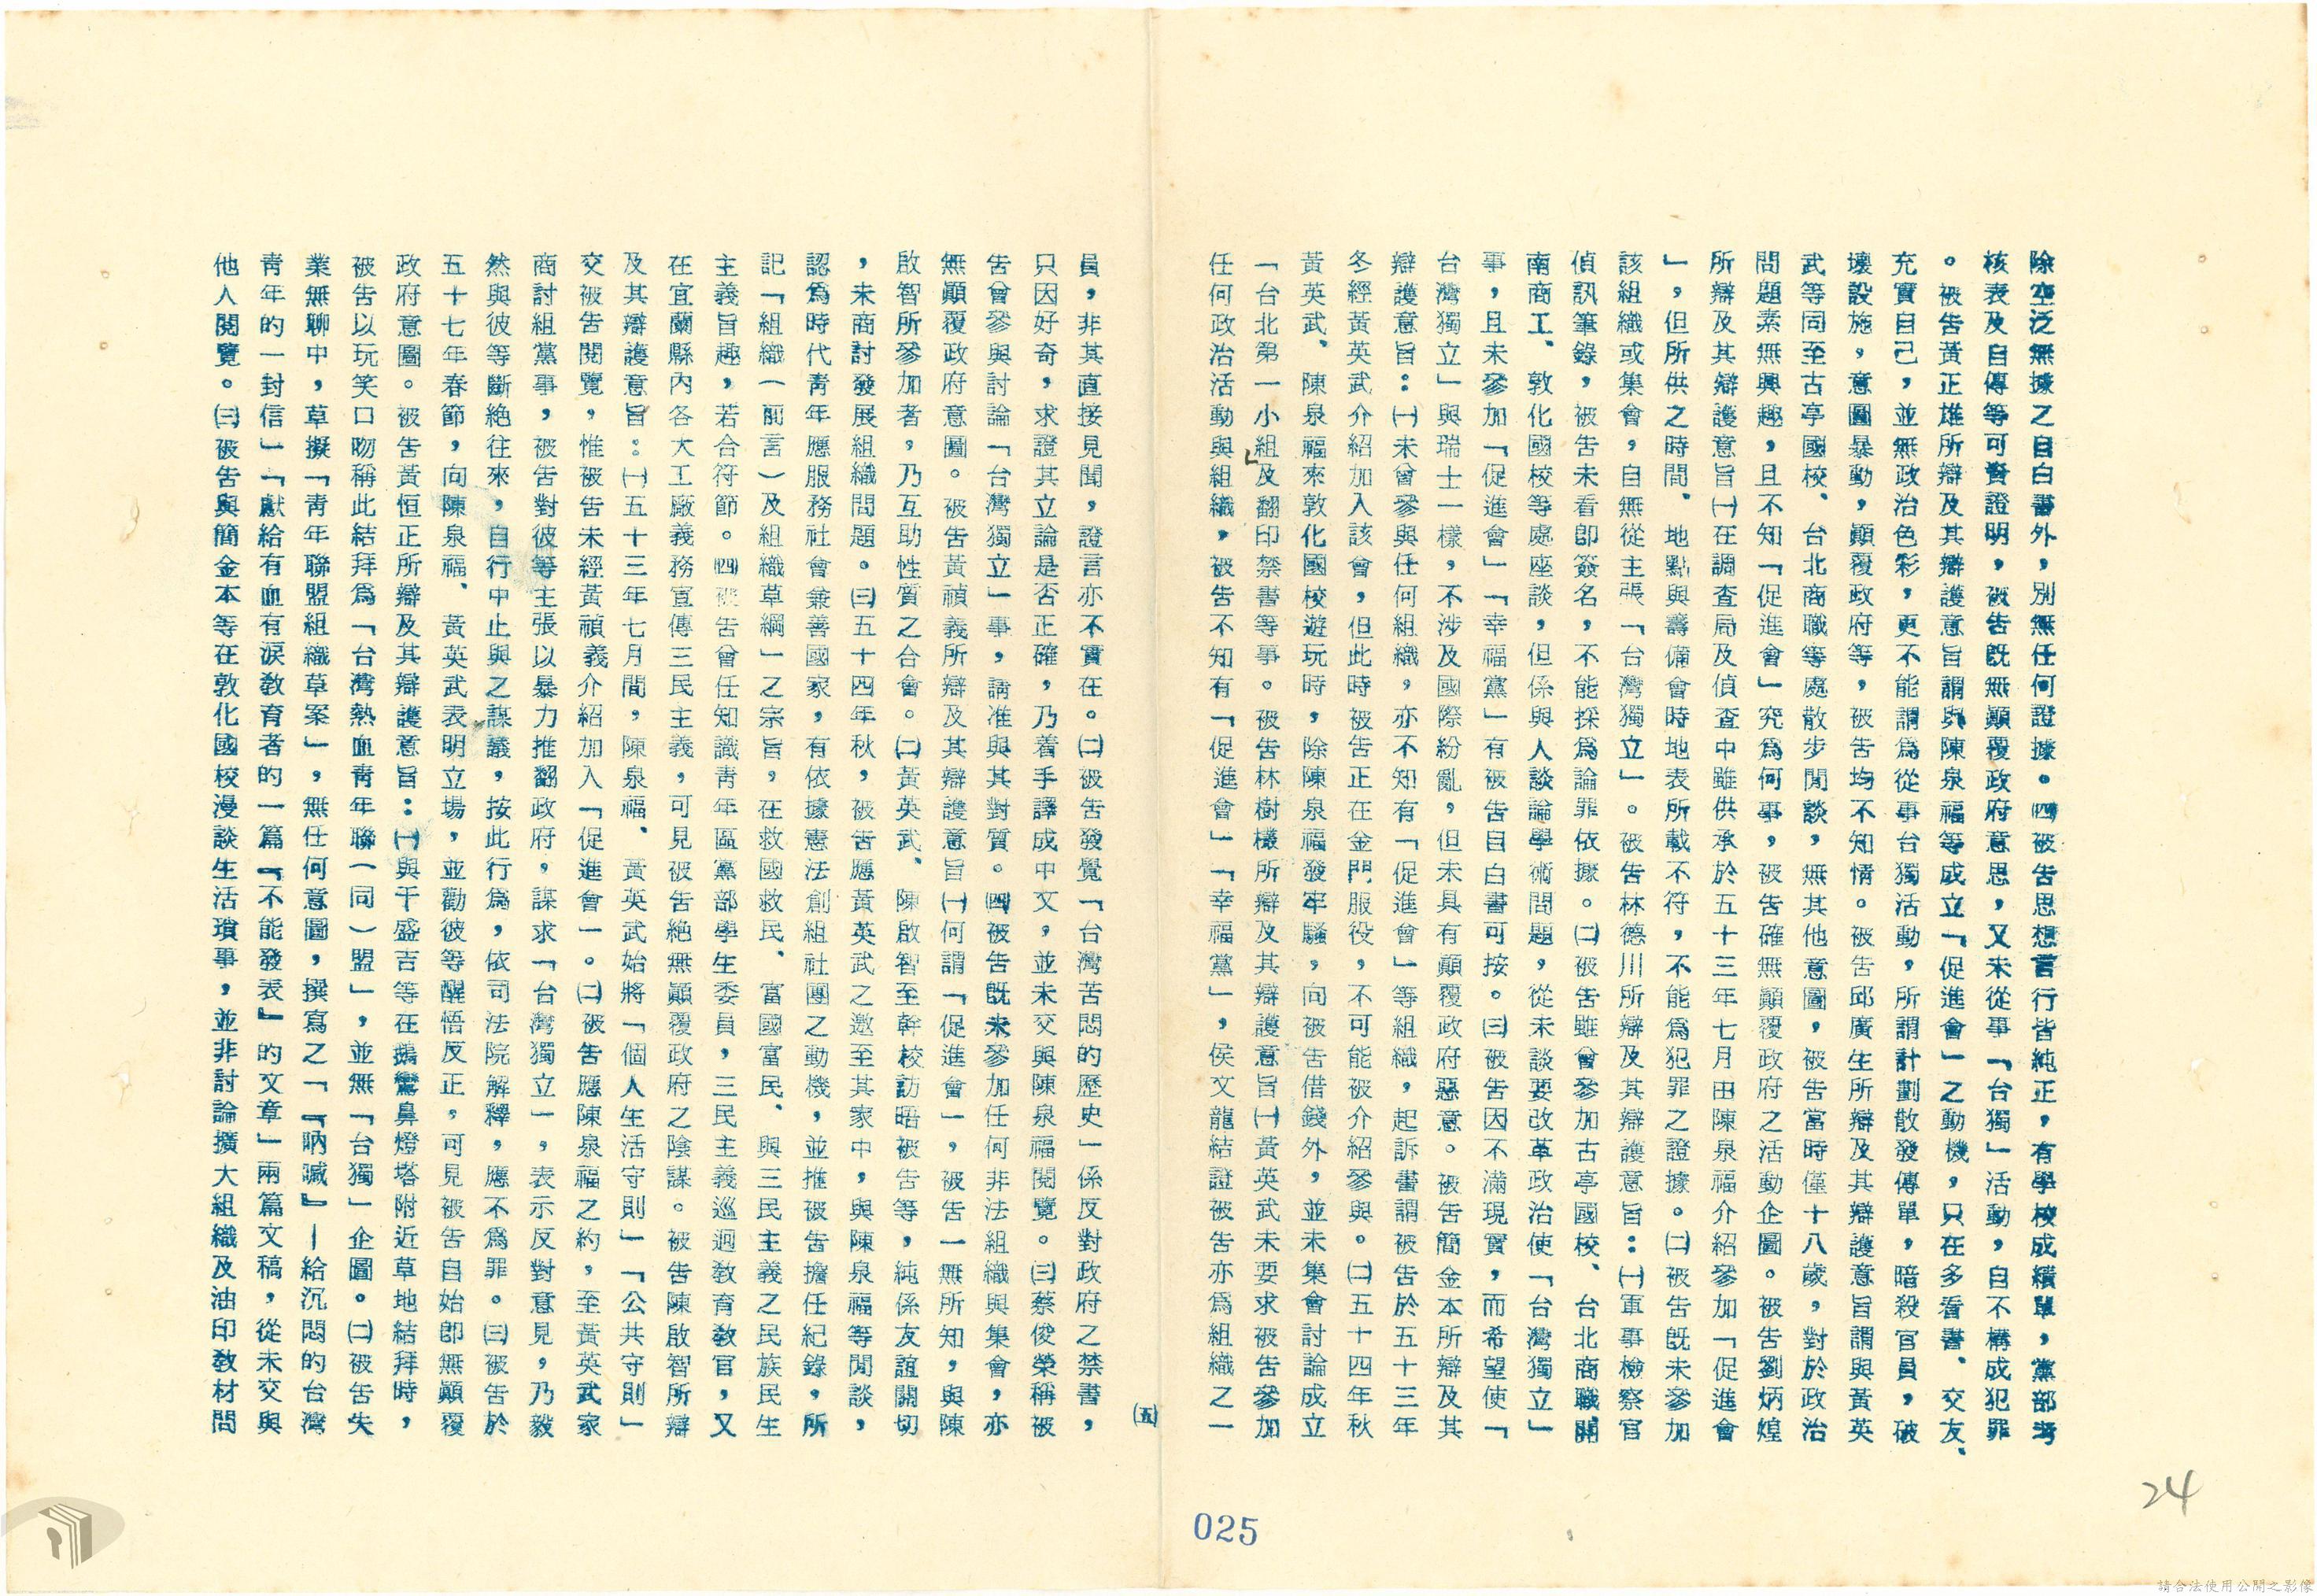 除空泛無據之自白書外，別無任何證據。㈣被告思想言行皆純正，有學校成績單，黨部考
核表及自傳等可資證明，被告既無顛覆政府意思，又未從事「台獨」活動，自不構成犯罪
。被告黃正雄所辯及其辯護意旨謂與陳泉福等成立「促進會」之動機，只在多看書、交友、
充實自己，並無政治色彩，更不能謂為從事台獨活動，所謂計劃散發傳單，暗殺官員，破
壞設施，意圖暴動，顛覆政府等，被告均不知情。被告邱廣生所辯及其辯護意旨謂與黃英
武等同至古亭國校、台北商職等處散步閒談，無其他意圖，被告當時僅十八歲，對於政治
問題素無興趣，且不知「促進會」究為何事，被告確無顛覆政府之活動企圖。被告劉炳煌
所辯及其辯護意旨㈠在調查局及偵查中雖供承於五十三年七月由陳泉福介紹參加「促進會
」，但所供之時間、地點與籌備會時地表所載不符，不能為犯罪之證據。㈡被告既未參加
該組織或集會，自無從主張「台灣獨立」。被告林德川所辯及其辯護意旨：㈠軍事檢察官
偵訊筆錄，被告未看即簽名，不能採為論罪依據。㈡被告雖曾參加古亭國校、台北商職開
南商工、敦化國校等處座談，但係與人談論學術問題，從未談要改革政治使「台灣獨立」
事，且未參加「促進會」「幸福黨」有被告自白書可按。㈢被告因不滿現實，而希望使「
台灣獨立」與瑞士一樣，不涉及國際紛亂，但未具有顛覆政府惡意。被告簡金本所辯及其
辯護意旨：㈠未曾參與任何組織，亦不知有「促進會」等組織，起訴書謂被告於五十三年
冬經黃英武介紹加入該會，但此時被告正在金門服役，不可能被介紹參與。㈡五十四年秋
黃英武、陳泉福來敦化國校遊玩時，除陳泉福發牢騷，向被告借錢外，並未集會討論成立
「台北第一小組及翻印禁書等事。被告林樹欉所辯及其辯護意旨㈠黃英武未要求被告參加
任何政治活動與組織，被告不知有「促進會」「幸福黨」，侯文龍結證被告亦為組織之一
㈤
員，非其直接見聞，證言亦不實在。㈡被告發覺「台灣苦悶的歷史」係反對政府之禁書，
只因好奇，求證其立論是否正確，乃着手譯成中文，並未交與陳泉福閱覽。㈢蔡俊榮稱被
告曾參與討論「台灣獨立」事，請准與其對質。㈣被告既未參加任何非法組織與集會，亦
無顛覆政府意圖。被告黃禎義所辯及其辯護意旨㈠何謂「促進會」，被告一無所知，與陳
啟智所參加者，乃互助性質之合會。㈡黃英武、陳啟智至幹校訪晤被告等，純係友誼關切
，未商討發展組織問題。㈢五十四年秋，被告應黃英武之邀至其家中，與陳泉福等閒談，
認為時代青年應服務社會兼善國家，有依據憲法創組社團之動機，並推被告擔任紀錄，所
記「組織（前言）及組織草綱」之宗旨，在救國救民、富國富民、與三民主義之民族民生
主義旨趣，若合符節。㈣被告曾任知識青年區黨部學生委員，三民主義巡迴教育教官，又
在宜蘭縣內各大工廠義務宣傳三民主義，可見被告絕無顛覆政府之陰謀。被告陳啟智所辯
及其辯護意旨：㈠五十三年七月間，陳泉福、黃英武始將「個人生活守則」「公共守則」
交被告閱覽，惟被告未經黃禎義介紹加入「促進會」。㈡被告應陳泉福之約，至黃英武家
商討組黨事，被告對彼等主張以暴力推翻政府，謀求「台灣獨立」，表示反對意見，乃毅
然與彼等斷絕往來，自行中止與之謀議，按此行為，依司法院解釋，應不為罪。㈢被告於
五十七年春節，向陳泉福、黃英武表明立場，並勸彼等醒悟反正，可見被告自始即無顛覆
政府意圖。被告黃恒正所辯及其辯護意旨：㈠與干盛吉等在鵝鑾鼻燈塔附近草地結拜時，
被告以玩笑口吻稱此結拜為「台灣熱血青年聯（同）盟」，並無「台獨」企圖。㈡被告失
業無聊中，草擬「青年聯盟組織草案」，無任何意圖，撰寫之「『吶喊』—給沉悶的台灣
青年的一封信」「獻給有血有淚教育者的一篇『不能發表』的文章」兩篇文稿，從未交與
他人閱覽。㈢被告與簡金本等在敦化國校漫談生活瑣事，並非討論擴大組織及油印教材問
025
24
請合法使用公開之影像